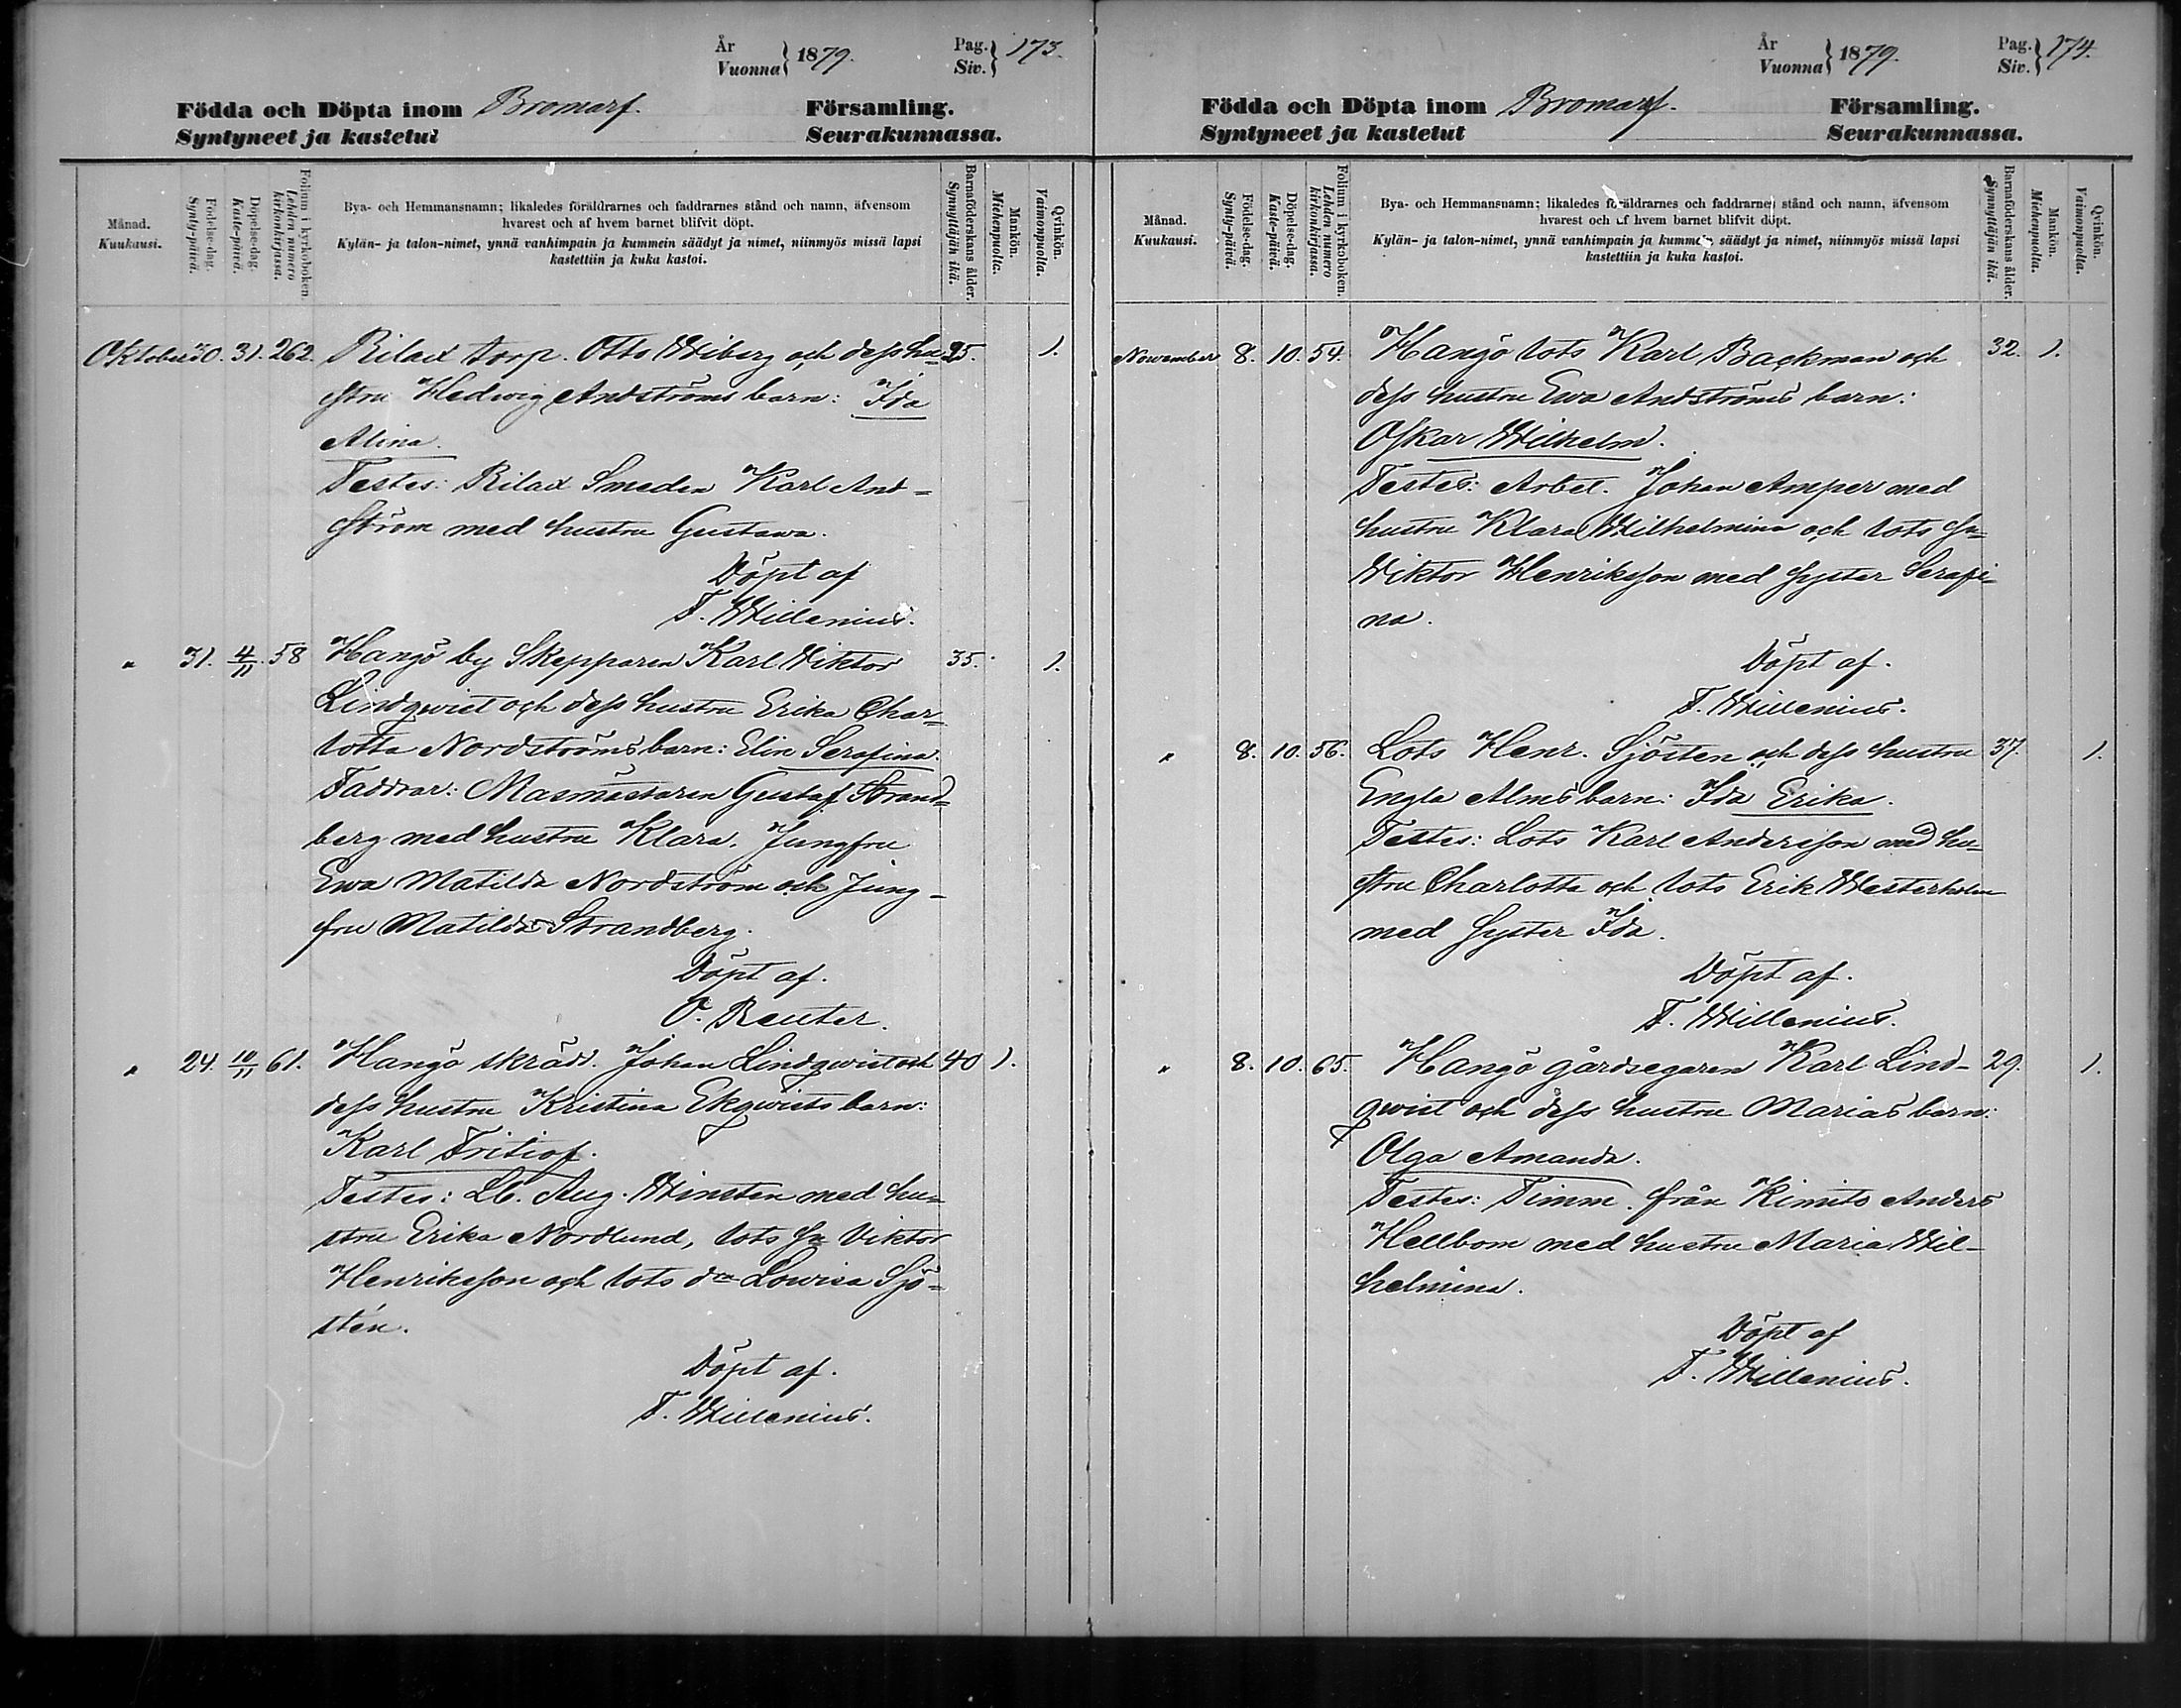 År
Vuonna } 1879.
Pag.
Siv. } 173.
Födda och Döpta inom Bromarf. Församling.
Syntyneet ja kastetut Seurakunnassa.
Månad.
Kuukausi.
Födelse-dag.
Synty-päivä.
Döpelse-dag.
Kaste-päivä.
Folium i kyrkoboken.
Lehden numero
kirkonkirjassa.
Bya- och Hemmansnamn; likaledes föräldrarnes och faddrarnes stånd och namn, äfvensom
hvarest och af hvem barnet blifvit döpt.
Kylän- ja talon-nimet, ynnä vanhimpain ja kummein säädyt ja nimet, niinmyös missä lapsi
kastettiin ja kuka kastoi.
Barnaföderskans ålder.
Synnyttäjän ikä.
Mankön.
Miehenpuolta.
Qvinkön.
Vaimonpuolta.
Oktober 30. 31. 262. Rilax torp. Otto Wiberg och dess hu- 35. 1.
stru Hedwig Andströms barn: Ida
Alina.
Testes: Rilax Smeden Karl And-
ström med hustru Gustawa.
Döpt af
F. Willenius.
" 31. 4/11. 58 Hangö by Skepparen Karl Viktor 35. 1.
Lindqwist och dess hustru Erika Char-
lotta Nordströms barn: Elin Serafina.
Faddrar: Masmästaren Gustaf Strand-
berg med hustru Klara. Jungfru
Ewa Matilda Nordström och Jung-
fru Matilda Strandberg.
Döpt af.
O. Reuter.
" 24. 10/11 61. Hangö skrädd. Johan Lindqwist och 40 1.
dess hustru Kristina Ekqwists barn:
Karl Fritiof.
Testes: Lb. Aug. Winsten med hu-
stru Erika Nordlund, lots sn Viktor
Henriksson och lots dr Lowisa Sjö-
stén.
Döpt af.
F. Willenius.
År
Vuonna } 1879.
Pag.
Siv. } 174.
Födda och Döpta inom Bromarf. Församling.
Syntyneet ja kastetut Seurakunnassa.
Månad.
Kuukausi.
Födelse-dag.
Synty-päivä.
Döpelse-dag.
Kaste-päivä.
Folium i kyrkoboken.
Lehden numero
kirkonkirjassa.
Bya- och Hemmansnamn; likaledes föräldrarnes och faddrarnes stånd och namn, äfvensom
hvarest och af hvem barnet blifvit döpt.
Kylän- ja talon-nimet, ynnä vanhimpain ja kummein säädyt ja nimet, niinmyös missä lapsi
kastettiin ja kuka kastoi.
Barnaföderskans ålder.
Synnyttäjän ikä.
Mankön.
Miehenpuolta.
Qvinkön.
Vaimonpuolta.
Nowember 8. 10. 54. Hangö lots Karl Backman och 32. 1.
dess hustru Ewa Andströms barn:
Oskar Wilhelm.
Testes: Arbet. Johan Amper med
hustru Klara Wilhelmina och lots sn
Wiktor Henriksson med syster Serafi-
na.
Döpt af.
F. Willenius.
" 8. 10. 56. Lots Henr. Sjösten och dess hustru 37. 1.
Engla Alms barn: Ida Erika.
Testes: Lots Karl Andersson med hu-
stru Charlotta och lots Erik Westerholm
med syster Ida.
Döpt af.
F. Willenius.
" 8. 10. 65. Hangö gårdsegaren Karl Lind- 29. 1.
qwist och dess hustru Marias barn:
Olga Amanda.
Testes: Timm. från Kimito Anders
Hellbom med hustru Maria Wil-
helmina.
Döpt af
F. Willenius.